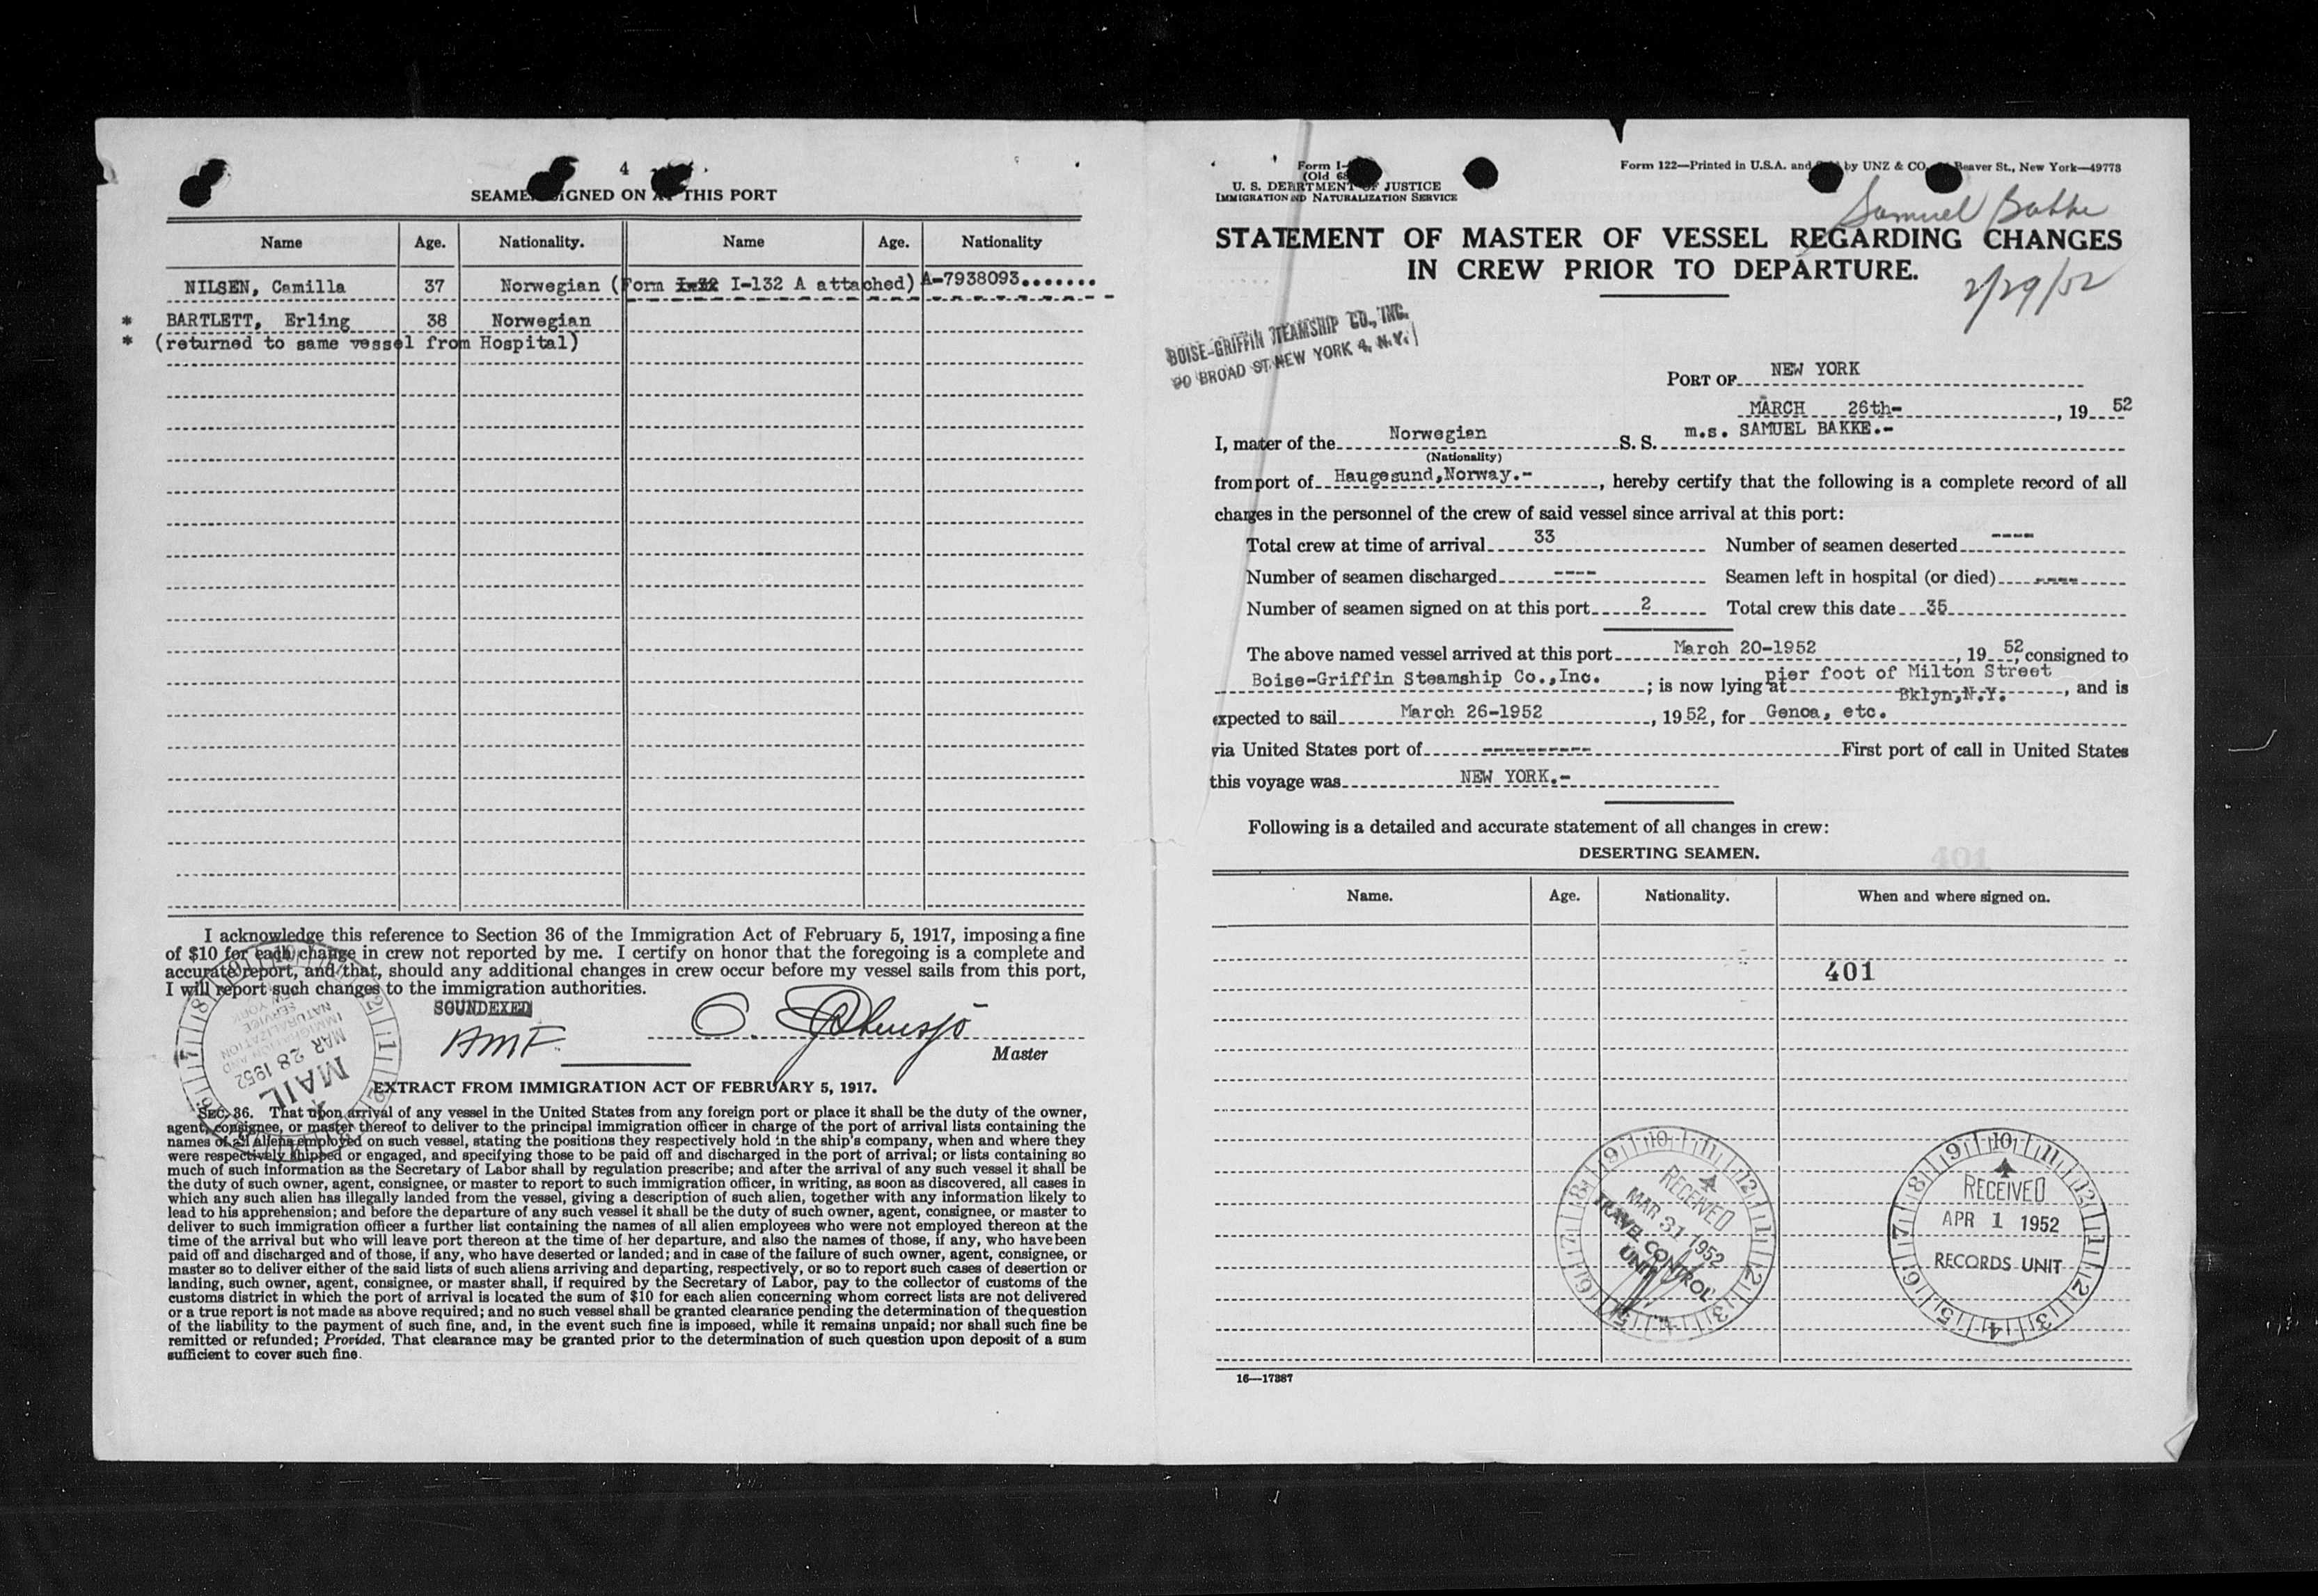 4
SEAMEN SIGNED ON AT THIS PORT
Name Age. Nationality. Name Age. Nationality
NILSEN, Camilla 37 Norwegian (Form I-32 I-132 A attached) A-7938093.......
* BARTLETT, Erling 38 Norwegian
* (returned to same vessel from Hospital)
I acknowledge this reference to Section 36 of the Immigration Act of February 5, 1917, imposing a fine
of $10 for each change in crew not reported by me. I certify on honor that the foregoing is a complete and
accurate report, and that, should any additional changes in crew occur before my vessel sails from this port,
I will report such changes to the immigration authorities.
SOUNDEXED
AMF
Master
MAIL
MAR 28 1952
IMMIGRATION AND
NATURALIZATION
SERVICE
NEW YORK
EXTRACT FROM IMMIGRATION ACT OF FEBRUARY 5, 1917.
SEC. 36. That upon arrival of any vessel in the United States from any foreign port or place it shall be the duty of the owner,
agent, consignee, or master thereof to deliver to the principal immigration officer in charge of the port of arrival lists containing the
names of all aliens employed on such vessel, stating the positions they respectively hold in the ship's company, when and where they
were respectively shipped or engaged, and specifying those to be paid off and discharged in the port of arrival; or lists containing so
much of such information as the Secretary of Labor shall by regulation prescribe; and after the arrival of any such vessel it shall be
the duty of such owner, agent, consignee, or master to report to such immigration officer, in writing, as soon as discovered, all cases in
which any such alien has illegally landed from the vessel, giving a description of such alien, together with any information likely to
lead to his apprehension; and before the departure of any such vessel it shall be the duty of such owner, agent, consignee, or master to
deliver to such immigration officer a further list containing the names of all alien employees who were not employed thereon at the
time of the arrival but who will leave port thereon at the time of her departure, and also the names of those, if any, who have been
paid off and discharged and of those, if any, who have deserted or landed; and in case of the failure of such owner, agent, consignee, or
master so to deliver either of the said lists of such aliens arriving and departing, respectively, or so to report such cases of desertion or
landing, such owner, agent, consignee, or master shall, if required by the Secretary of Labor, pay to the collector of customs of the
customs district in which the port of arrival is located the sum of $10 for each alien concerning whom correct lists are not delivered
or a true report is not made as above required; and no such vessel shall be granted clearance pending the determination of the question
of the liability to the payment of such fine, and, in the event such fine is imposed, while it remains unpaid; nor shall such fine be
remitted or refunded; Provided, That clearance may be granted prior to the determination of such question upon deposit of a sum
sufficient to cover such fine.
Form I-
(Old 68
U. S. DEPARTMENT OF JUSTICE
IMMIGRATION AND NATURALIZATION SERVICE
Form 122—Printed in U.S.A. and Sold by UNZ & CO. Beaver St., New York—49778
Samuel Bakke
STATEMENT OF MASTER OF VESSEL REGARDING CHANGES
IN CREW PRIOR TO DEPARTURE.
2/29/52
BOISE-GRIFFIN STEAMSHIP CO., INC.
90 BROAD ST. NEW YORK 4, N.Y.
PORT OF NEW YORK
MARCH 26th- , 19 52
I, mater of the Norwegian S. S. m.s. SAMUEL BAKKE.-
(Nationality)
from port of Haugesund,Norway.- , hereby certify that the following is a complete record of all
changes in the personnel of the crew of said vessel since arrival at this port:
Total crew at time of arrival 33 Number of seamen deserted ----
Number of seamen discharged ---- Seamen left in hospital (or died) ----
Number of seamen signed on at this port 2 Total crew this date 35
The above named vessel arrived at this port March 20-1952 , 19 52, consigned to
Boise-Griffin Steamship Co.,Inc. ; is now lying at pier foot of Milton Street
Bklyn,N.Y. , and is
expected to sail March 26-1952 , 19 52, for Genoa, etc.
via United States port of ---------- First port of call in United States
this voyage was NEW YORK.-
Following is a detailed and accurate statement of all changes in crew:
DESERTING SEAMEN.
Name. Age. Nationality. When and where signed on.
401
RECEIVED
MAR 31 1952
TRAVEL CONTROL
UNIT
RECEIVED
APR 1 1952
RECORDS UNIT
16—17387